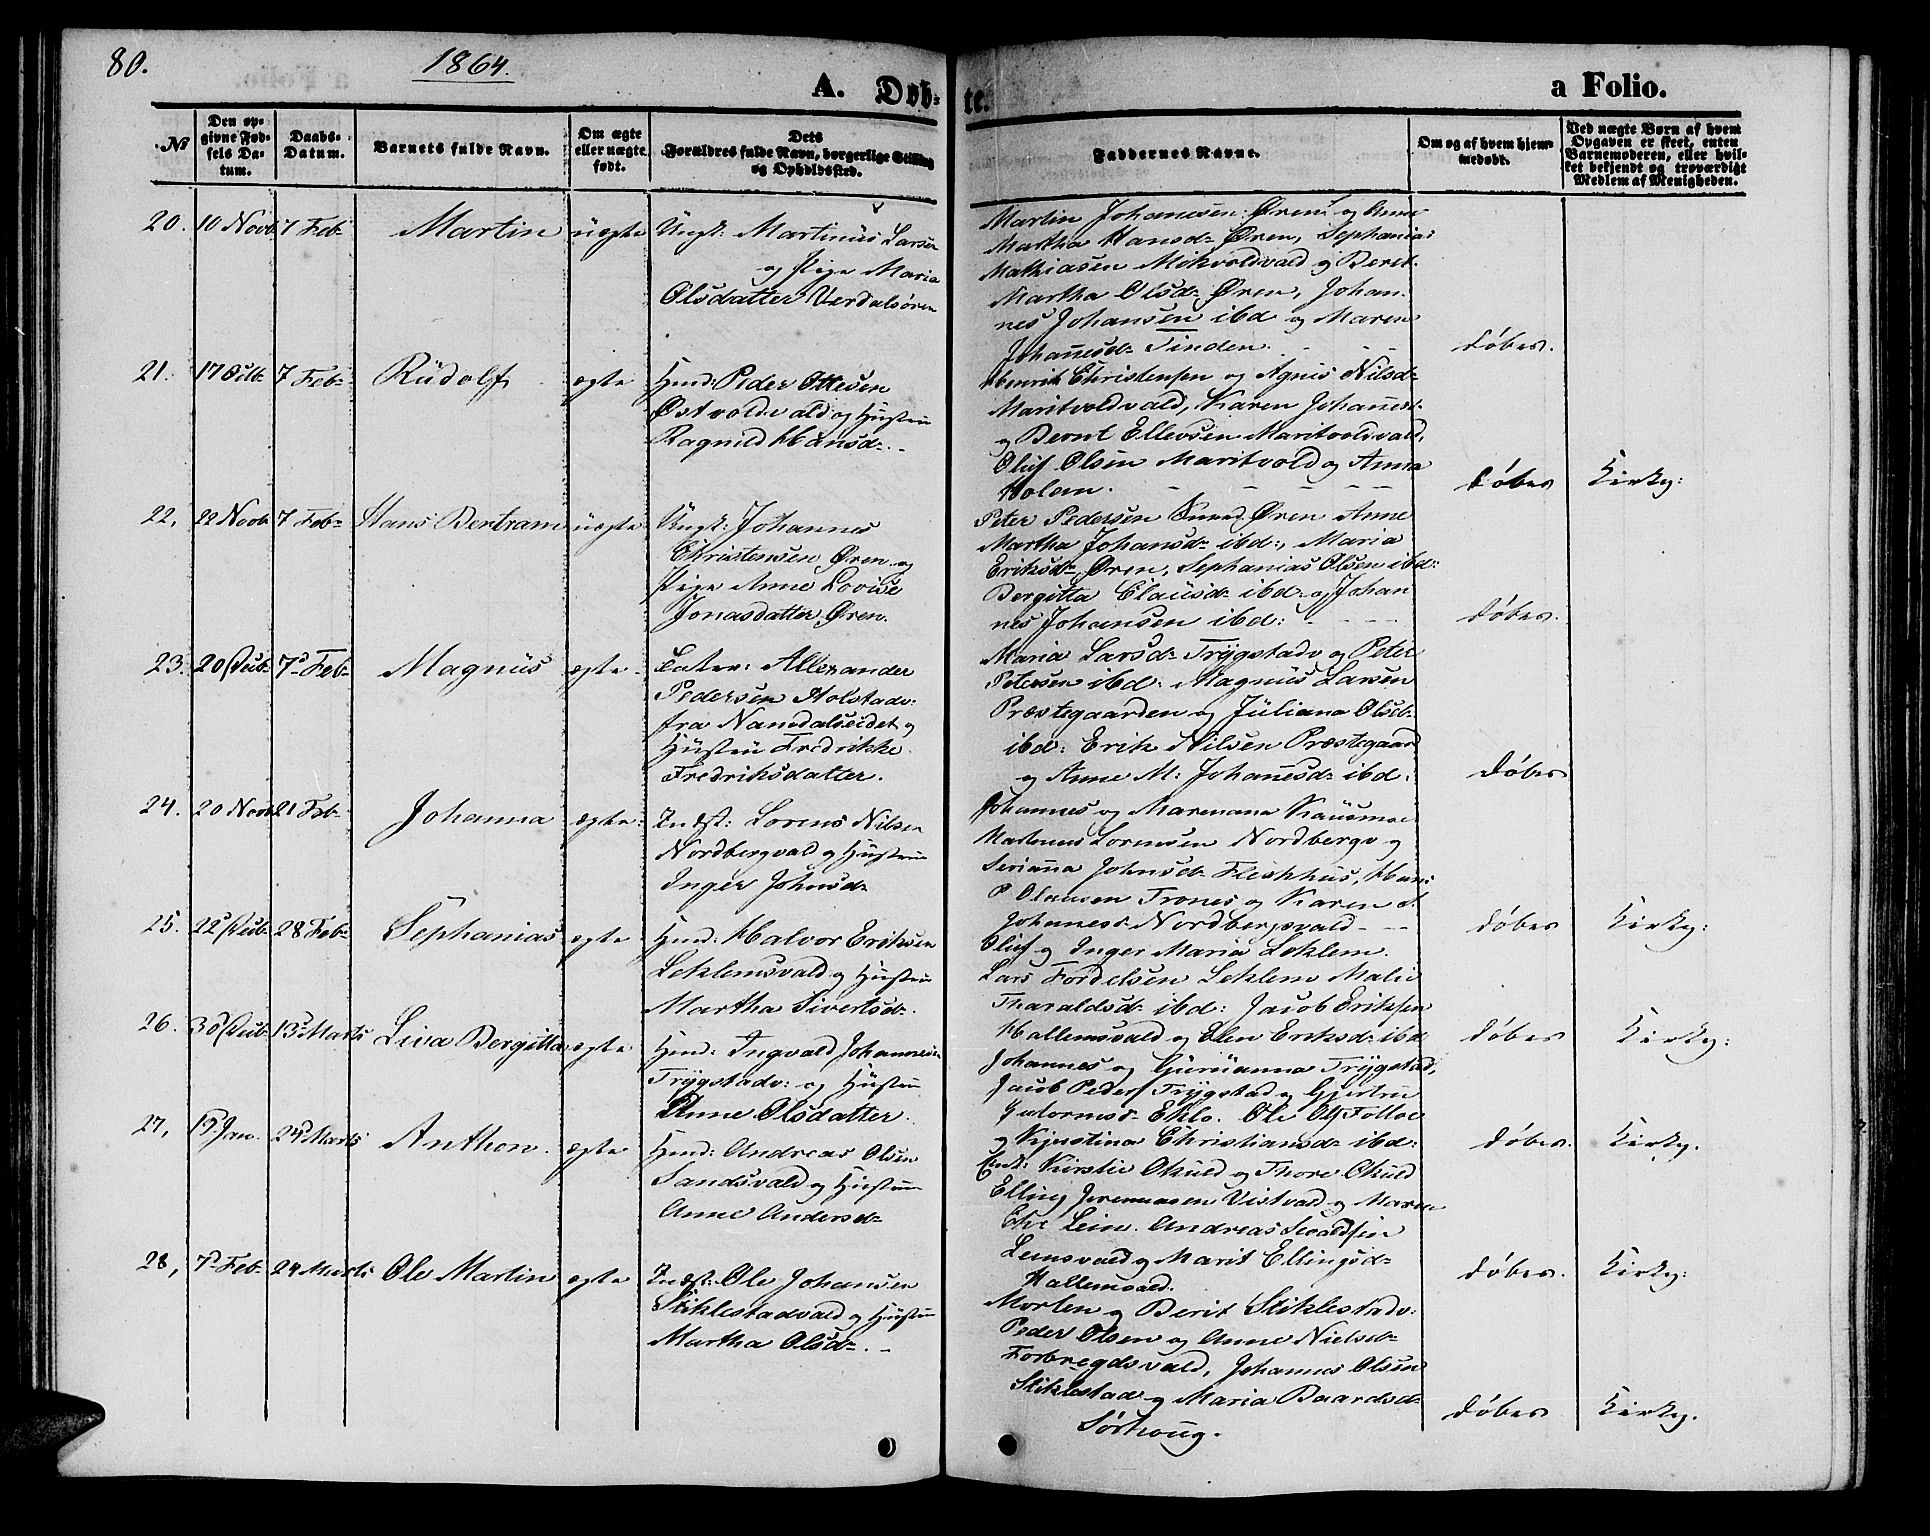 80.
1864.
A. Døb-
te.
a Folio.
No
Den op-
givne Fød-
sels Da-
tum.
Daabs-
Datum.
Barnets fulde Navn.
Om ægte
eller uægte
født.
Dets
Forældres fulde Navn, borgerlige Stilling
og Opholdssted.
Faddernes Navne.
Om og af hvem hjem-
medøbt.
Ved uægte Børn af hvem
Opgaven er skeet, enten
Barnemoderen, eller hvil-
ket bekjendt og troværdigt
Medlem af Menigheden.
20. 10 Novb 7 Feb- Martin uægte
Ungk: Martinus Larsen
og Pige Maria
Olsdatter Verdalsøren
Martin Johanesen: Øren og Anna
Martha Hansd- Øren, Sephanias
Mathiasen Mikvoldvald og Beret
Martha Olsd- Øren, Johan-
nes Johansen ibd og Maren
Johanesd- Tinden.
døber.
21. 17 7 Feb- Rudolf ægte
Hmd: Peder Ottesen
Østvoldvald og Hustru
Ragnild Hansd-.
Henrik Christensen og Agnis Nilsd-
Maritvoldvald, Karen Johanesd-
og Bernt Ellevsen Maritvoldvald,
Oluf Olsen Maritvold og Anna
Holem.
døber Kirkg:
22, 22 Novb 7 Feb- Hans Bertram uægte
Ungk: Johannes
Christensen Øren og
Pige Anne Lovise
Jonasdatter Øren.
Peter Pedersen Øren Anne
Martha Johansd- ibd:, Maria
Eriksd- Øren, Sephanias Olsen ibd:
Bergitta Clausd- ibd- og Johan
nes Johansen ibd:
døber.
23. 20 7- Feb- Magnus ægte
Allexander
Pedersen Holstadv:
fra Namdalseidet og
Hustru Fredrikke
Fredriksdatter.
Maria Larsd- Trygstadv og Peter
Petersen ibd: Magnus Larsen
Præstegaarden og Juliana Olsd-
ibd: Erik Nilsen Præstegaard
og Anne M: Johanesd- ibd:
døber
24. 20 Novb 21 Feb- Johanna ægte
Indst: Lorens Nilsen
Nordbergvald og Hustru
Inger Johnsd-
Johannes og Marenana Kausmoe
Martenus Lornsen Nordbergv og
Serianna Johnsd- Fleskhus, Hans
P Olausen Trones og Karen
Johanesd- Nordbergsvald
døber Kirkg:
25. 22 28 Feb- Sephanias ægte
Hmd: Halvor Eriksen
Leklemsvald og Hustru
Martha Sivertsd-.
Oluf og Inger Maria Leklem.
Lars Fordelsen Leklem Malie
Tharaldsd- ibd: Jacob Eriksen
Hallemsvald og Elen Eriksd- ibd
døber Kirkg:
26. 30 13 Marts Lina Bergitta ægte
Hmd: Ingvald Johannesen
Trygstadv: og Hustru
Anne Olsdatter.
Johannes og Guruanna Trygstad,
Jacob Peders Trygstad og Gjertru
Gutormsd- Eklo. Ole Ols Folloe
og Kjerstina Christiansd- ibd:
døber. Kirkg.
27, 15 Jan. 24 Marts Anthon. ægte
Hmd: Andreas Olsen
Sandsvald og Hustru
Anne Andersd-
Kirstie Okuld og Thore Okuld
Elling Jeremiasen Vistvald og Maren
Leira. Andreas
Lemsvald og Marit Ellingsd-
Hallemvald.
døber. Kirkg:
28, 7 Feb- 24 Marts Ole Martin ægte
Indst: Ole Johansen
Stiklestadvald og Hustru
Martha Olsd-.
Morten og Berit Stiklestadv:
Peder Olsen og Anne Nielsd-
Forbregdsvald, Johannes Olsen
Stiklestad og Maria Baardsd-
Sørhoug.
døber Kirkg.